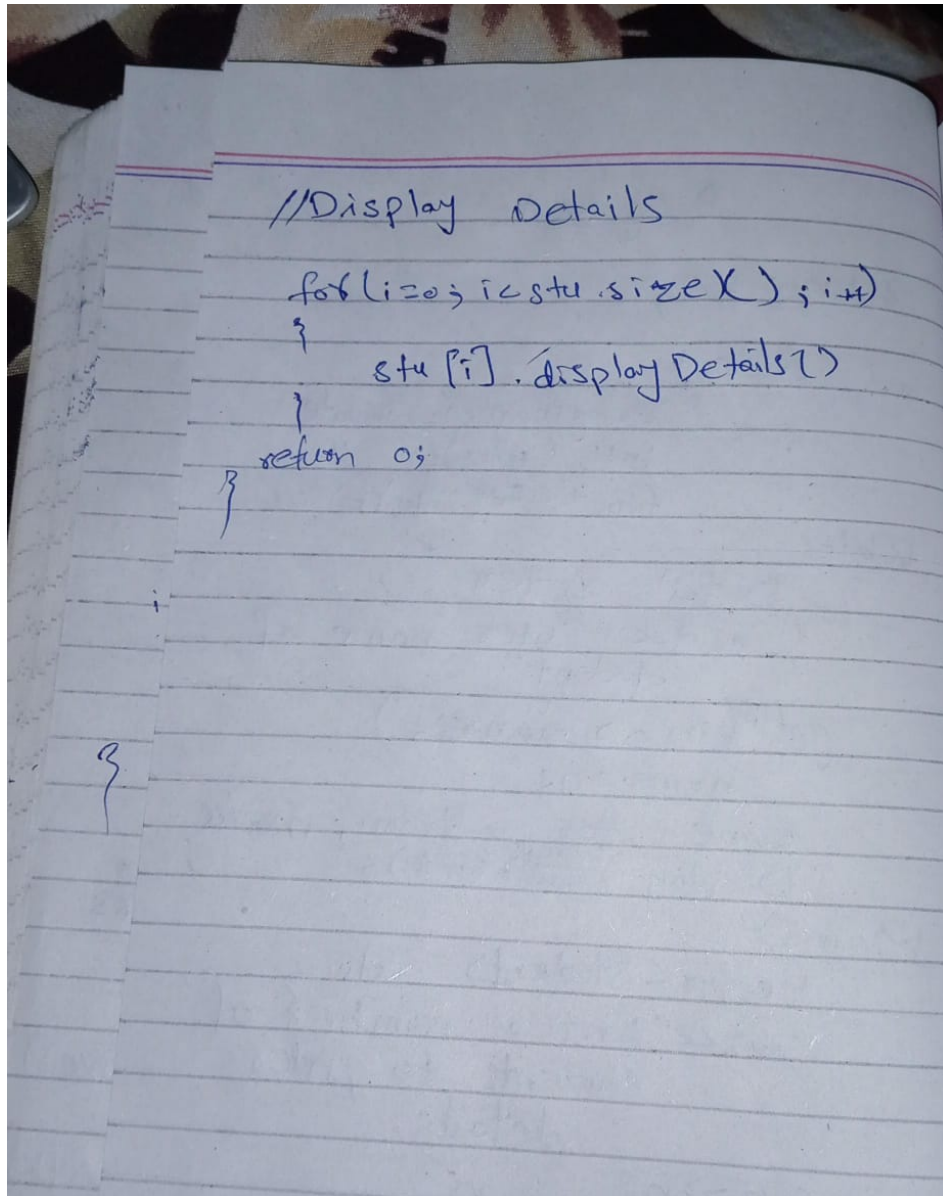 //Display Details
for(i=0; i<stu.size(); i++)
{
stu[i].displayDetails()
}
return 0;
}
i
}